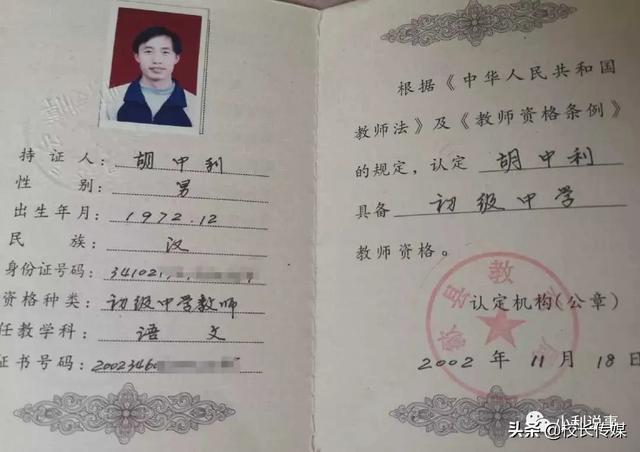 持证人：胡中利
性别：男
出生年月：1972.12
民族：汉
身份证号码：341021
资格种类：初级中学教师
任教学科：语文
证书号码：2002346
根据《中华人民共和国
教师法》及《教师资格条例》
的规定，认定 胡中利
具备 初级中学
教师资格。
认定机构（公章）
2002 年 11 月 18 日
小利说事
头条@校长传媒